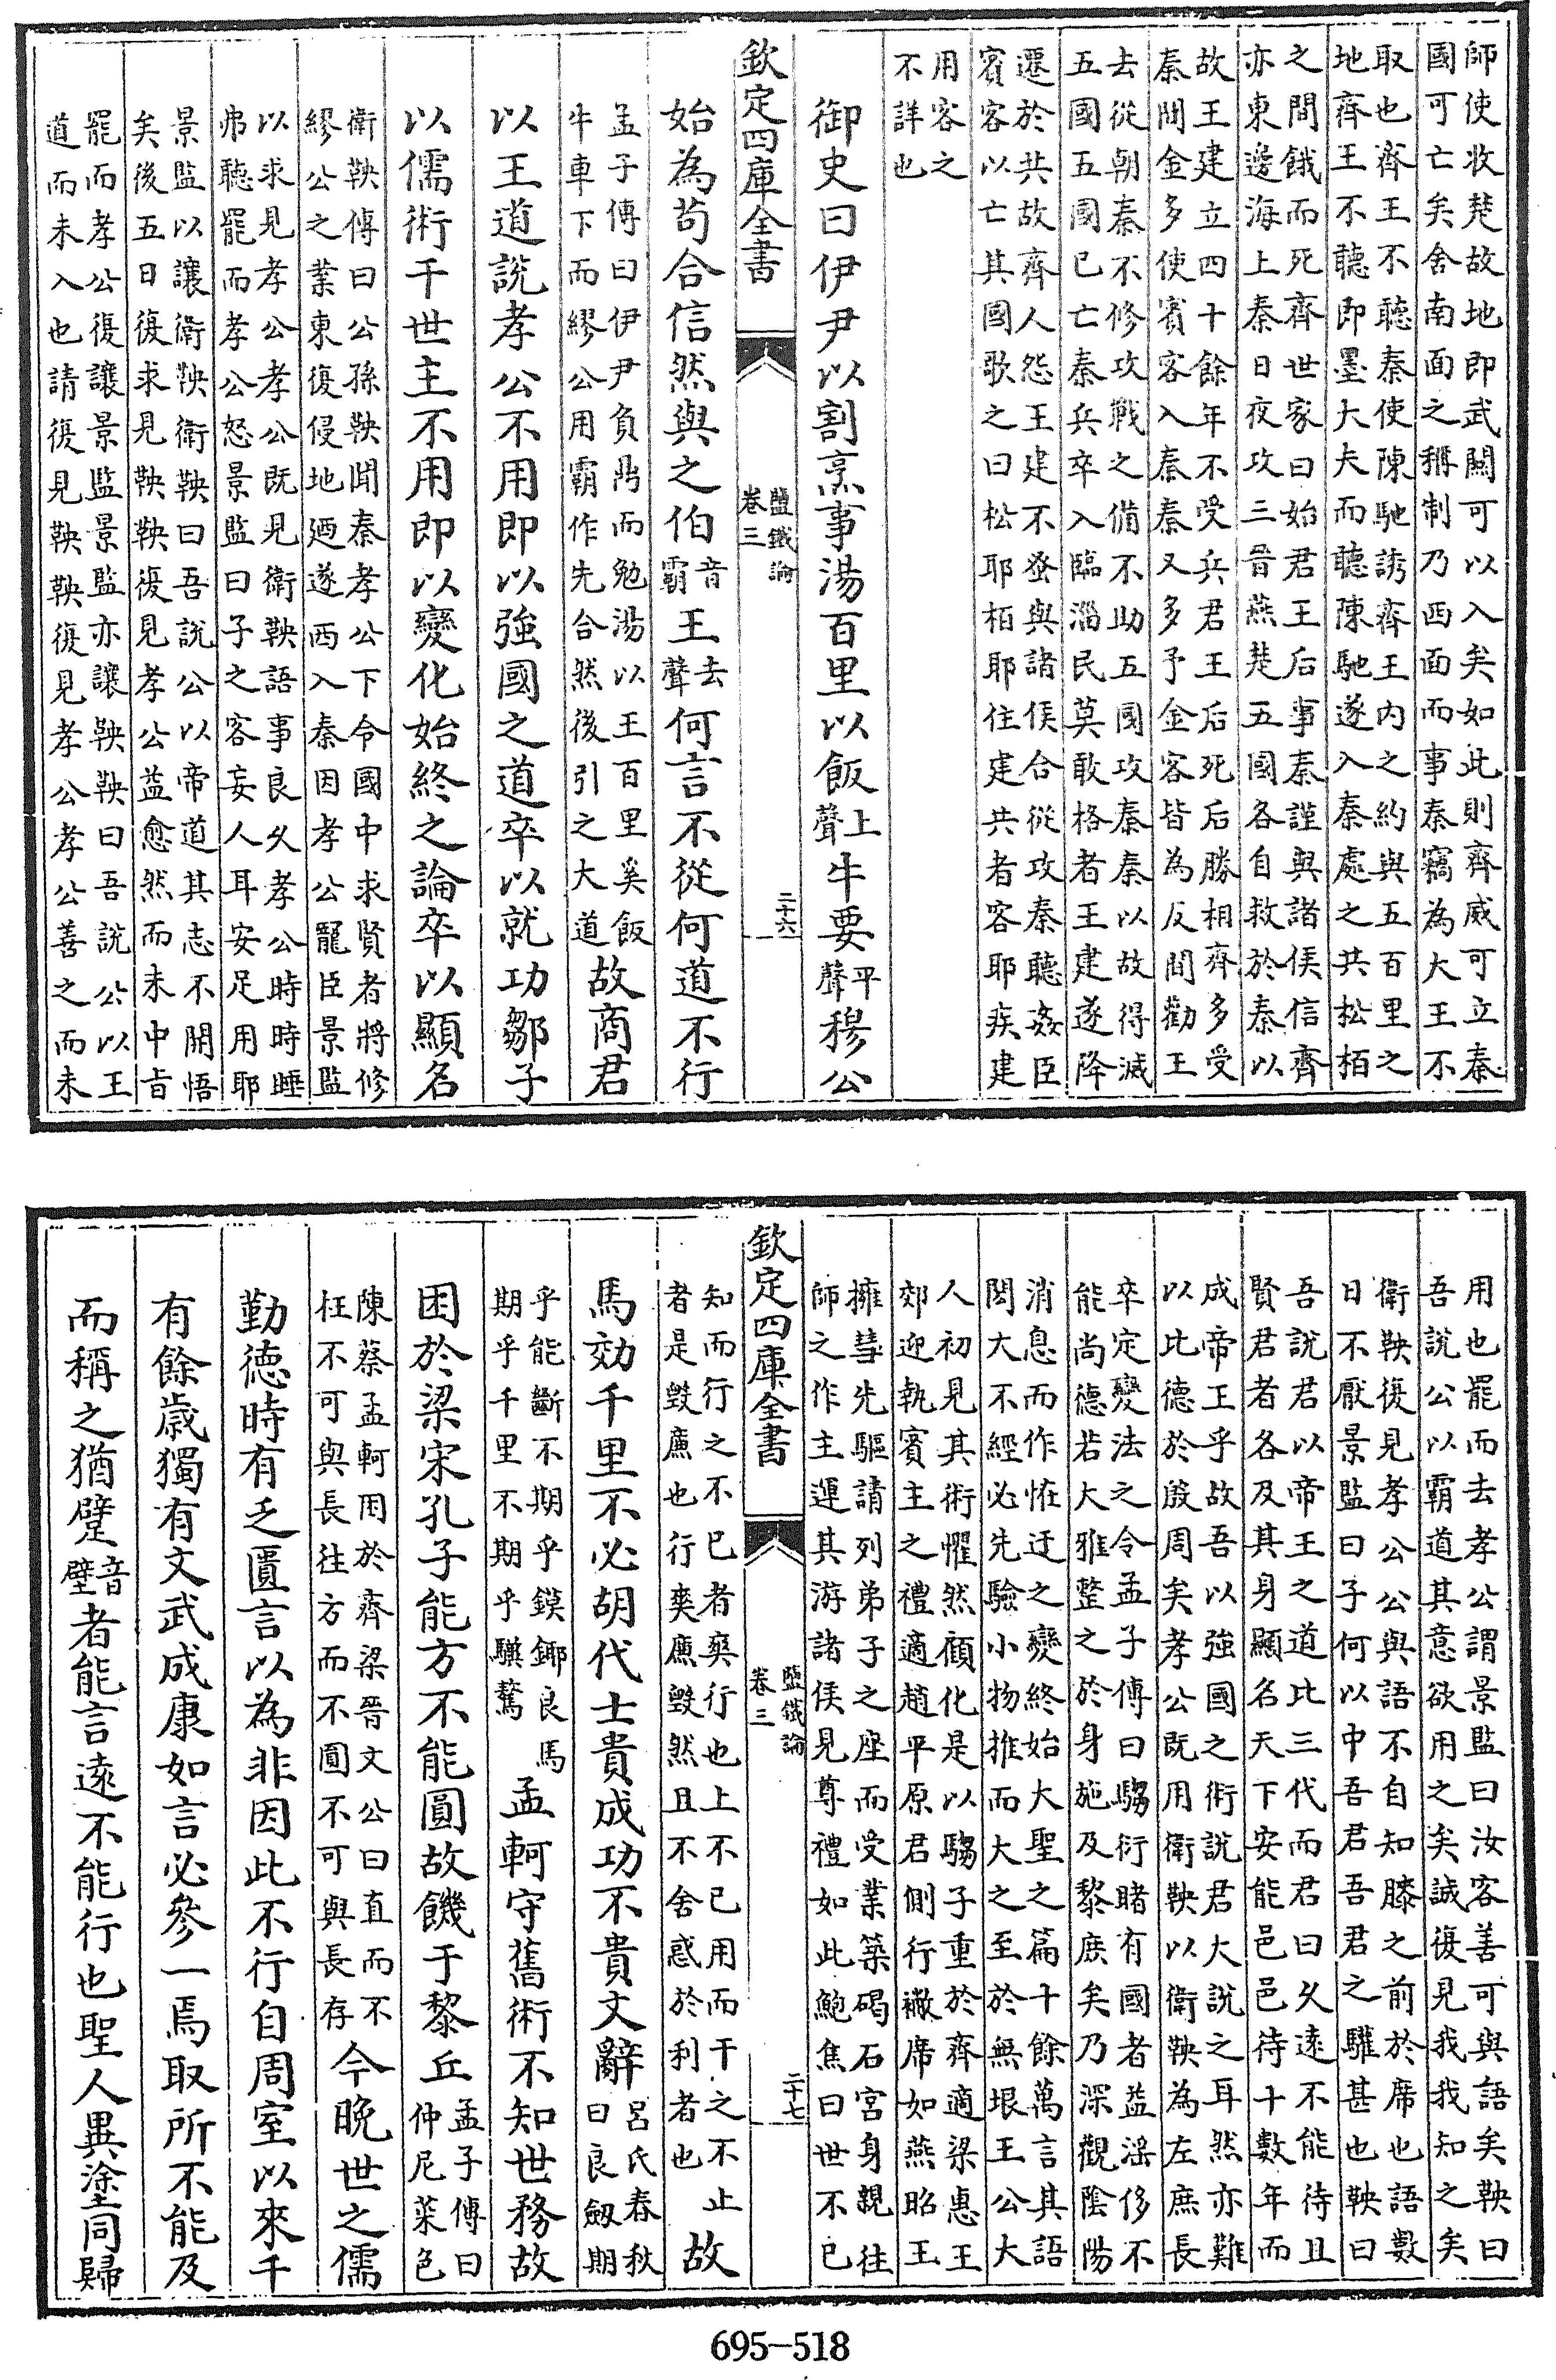 師使收楚故地即武關可以入矣如此則齊威可立秦
國可亡矣舍南面之稱制乃西面而事秦竊為大王不
取也齊王不聽秦使陳馳誘齊王内之約與五百里之
地齊王不聽即墨大夫而聽陳馳遂入秦處之共松栢
之間餓而死齊世家曰始君王后事秦謹與諸侯信齊
亦東邊海上秦日夜攻三晉燕楚五國各自救於秦以
故王建立四十餘年不受兵君王后死后勝相齊多受
秦間金多使賓客入秦秦又多予金客皆為反間勸王
去從朝秦不修攻戰之備不助五國攻秦秦以故得滅
五國五國已亡秦兵卒入臨淄民莫敢格者王建遂降
遷於共故齊人怨王建不蚤與諸侯合從攻秦聽姦臣
賓客以亡其國歌之曰松耶柏耶住建共者客耶疾建
用客之
不詳也
御史曰伊尹以割烹事湯百里以飯上聲牛要平聲穆公
欽定四庫全書
鹽鐵論
卷三
二十六
始為苟合信然與之伯音霸王去聲何言不從何道不行
孟子傳曰伊尹負鼎而勉湯以王百里奚飯
牛車下而繆公用霸作先合然後引之大道
故商君
以王道說孝公不用即以強國之道卒以就功鄒子
以儒術干世主不用即以變化始終之論卒以顯名
衛鞅傳曰公孫鞅聞秦孝公下令國中求賢者將修
繆公之業東復侵地廼遂西入秦因孝公寵臣景監
以求見孝公孝公既見衛鞅語事良久孝公時時睡
弗聽罷而孝公怒景監曰子之客妄人耳安足用耶
景監以讓衛鞅衛鞅曰吾說公以帝道其志不開悟
矣後五日復求見鞅鞅復見孝公益愈然而未中旨
罷而孝公復讓景監景監亦讓鞅鞅曰吾說公以王
道而未入也請復見鞅鞅復見孝公孝公善之而未
用也罷而去孝公謂景監曰汝客善可與語矣鞅曰
吾說公以霸道其意欲用之矣誠復見我我知之矣
衛鞅復見孝公公與語不自知膝之前於席也語數
日不厭景監曰子何以中吾君吾君之驩甚也鞅曰
吾說君以帝王之道比三代而君曰久遠不能待且
賢君者各及其身顯名天下安能邑邑待十數年而
成帝王乎故吾以強國之術說君大說之耳然亦難
以比德於殷周矣孝公既用衛鞅以衛鞅為左庶長
卒定變法之令孟子傳曰騶衍睹有國者益淫侈不
能尚德若大雅整之於身施及黎庶矣乃深觀陰陽
消息而作恠迂之變終始大聖之篇十餘萬言其語
閎大不經必先驗小物推而大之至於無垠王公大
人初見其術懼然顧化是以騶子重於齊適梁惠王
郊迎執賓主之禮適趙平原君側行襒席如燕昭王
擁彗先驅請列弟子之座而受業築碣石宮身親往
師之作主運其游諸侯見尊禮如此鮑焦曰世不已
欽定四庫全書
鹽鐵論
卷三
二十七
知而行之不已者爽行也上不已用而干之不止
者是毀亷也行爽亷毀然且不舍惑於利者也
故
馬効千里不必胡代士貴成功不貴文辭
呂氏春秋
曰良劔期
乎能斷不期乎鏌鎁良馬
期乎千里不期乎驥驁
孟軻守舊術不知世務故
困於梁宋孔子能方不能圓故饑于黎丘
孟子傳曰
仲尼菜色
陳蔡孟軻困於齊梁晉文公曰直而不
枉不可與長往方而不圓不可與長存
今晚世之儒
勤德時有乏匱言以為非因此不行自周室以來千
有餘歲獨有文武成康如言必參一焉取所不能及
而稱之猶躄音壁者能言遠不能行也聖人異塗同歸
695-518